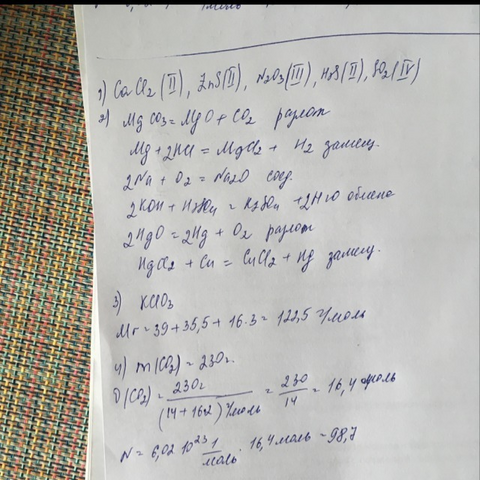 1) CaCl2 (II), ZnS(II), N2O3(III), H2S(II), SO2(IV)
2) MgCO3 = MgO + CO2 разлож
Mg + 2HCl = MgCl2 + H2 замещ.
2Na + O2 = Na2O соед.
2KOH + H2SO4 = K2SO4 + 2H2O обмена
2HgO = 2Hg + O2 разлож
HgCl2 + Cu = CuCl2 + Hg замещ.
3) KClO3
Mr = 39 + 35,5 + 16·3 = 122,5 г/моль
4) m(CO2) = 230г.
υ(CO2) = 230г / (14 + 16·2) г/моль = 230 / 14 = 16,4 моль
N = 6,02 10^23 1/моль · 16,4 моль = 98,7